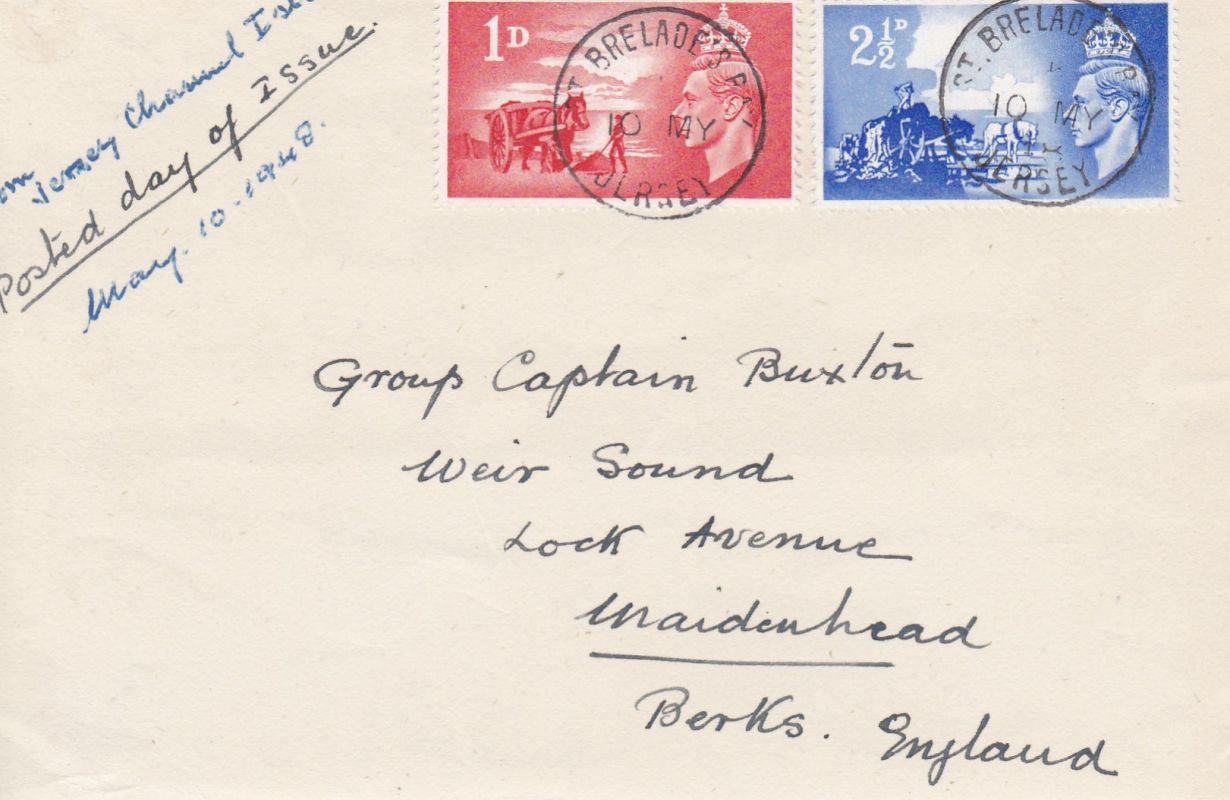 Jersey Channel
Posted day of Issue.
May. 10. 1948.
1D
ST. BRELADE'S BAY
10 MY
JERSEY
2½D
ST. BRELADE'S B
10 MY
JERSEY
Group Captain Buxton
Weir Sound
Lock Avenue
Maidenhead
Berks. England